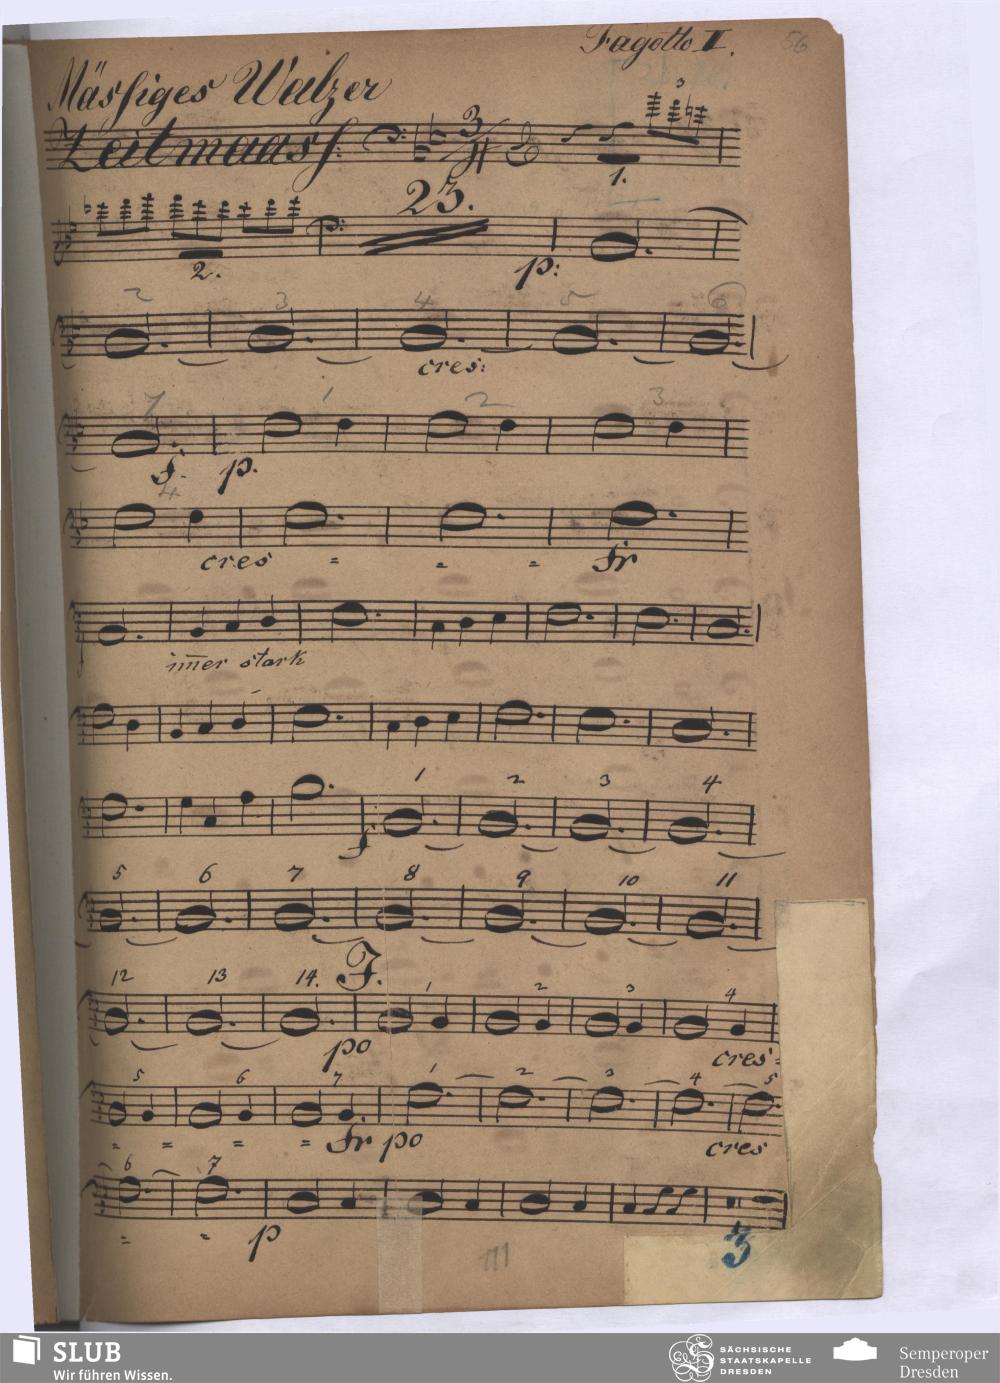 Fagotto II.
56
Mässiges Walzer
Zeitmaass:
3/4
3
1.
23.
2.
p:
2 3 4 5 6
cres:
7 1 2 3
f. p.
4
cres = = = Fr
im̅er stark
1 2 3 4
f
5 6 7 8 9 10 11
12 13 14. F. 1 2 3 4
po cres=
5 6 7 1 2 3 4 5
= = = = Fr po cres
6 7
= = p
3
SLUB
Wir führen Wissen.
SÄCHSISCHE
STAATSKAPELLE
DRESDEN
Semperoper
Dresden